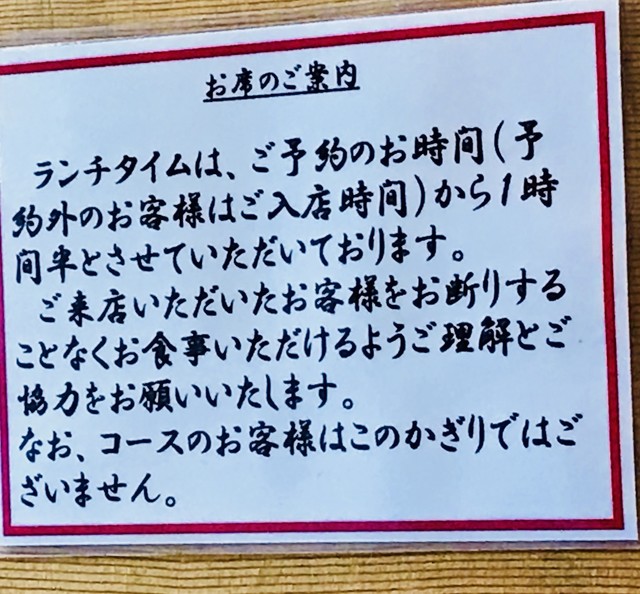 お席のご案内
ランチタイムは、ご予約のお時間(予
約外のお客様はご入店時間)から1時
間半とさせていただいております。
ご来店いただいたお客様をお断りする
ことなくお食事いただけるようご理解とご
協力をお願いいたします。
なお、コースのお客様はこのかぎりではご
ざいません。